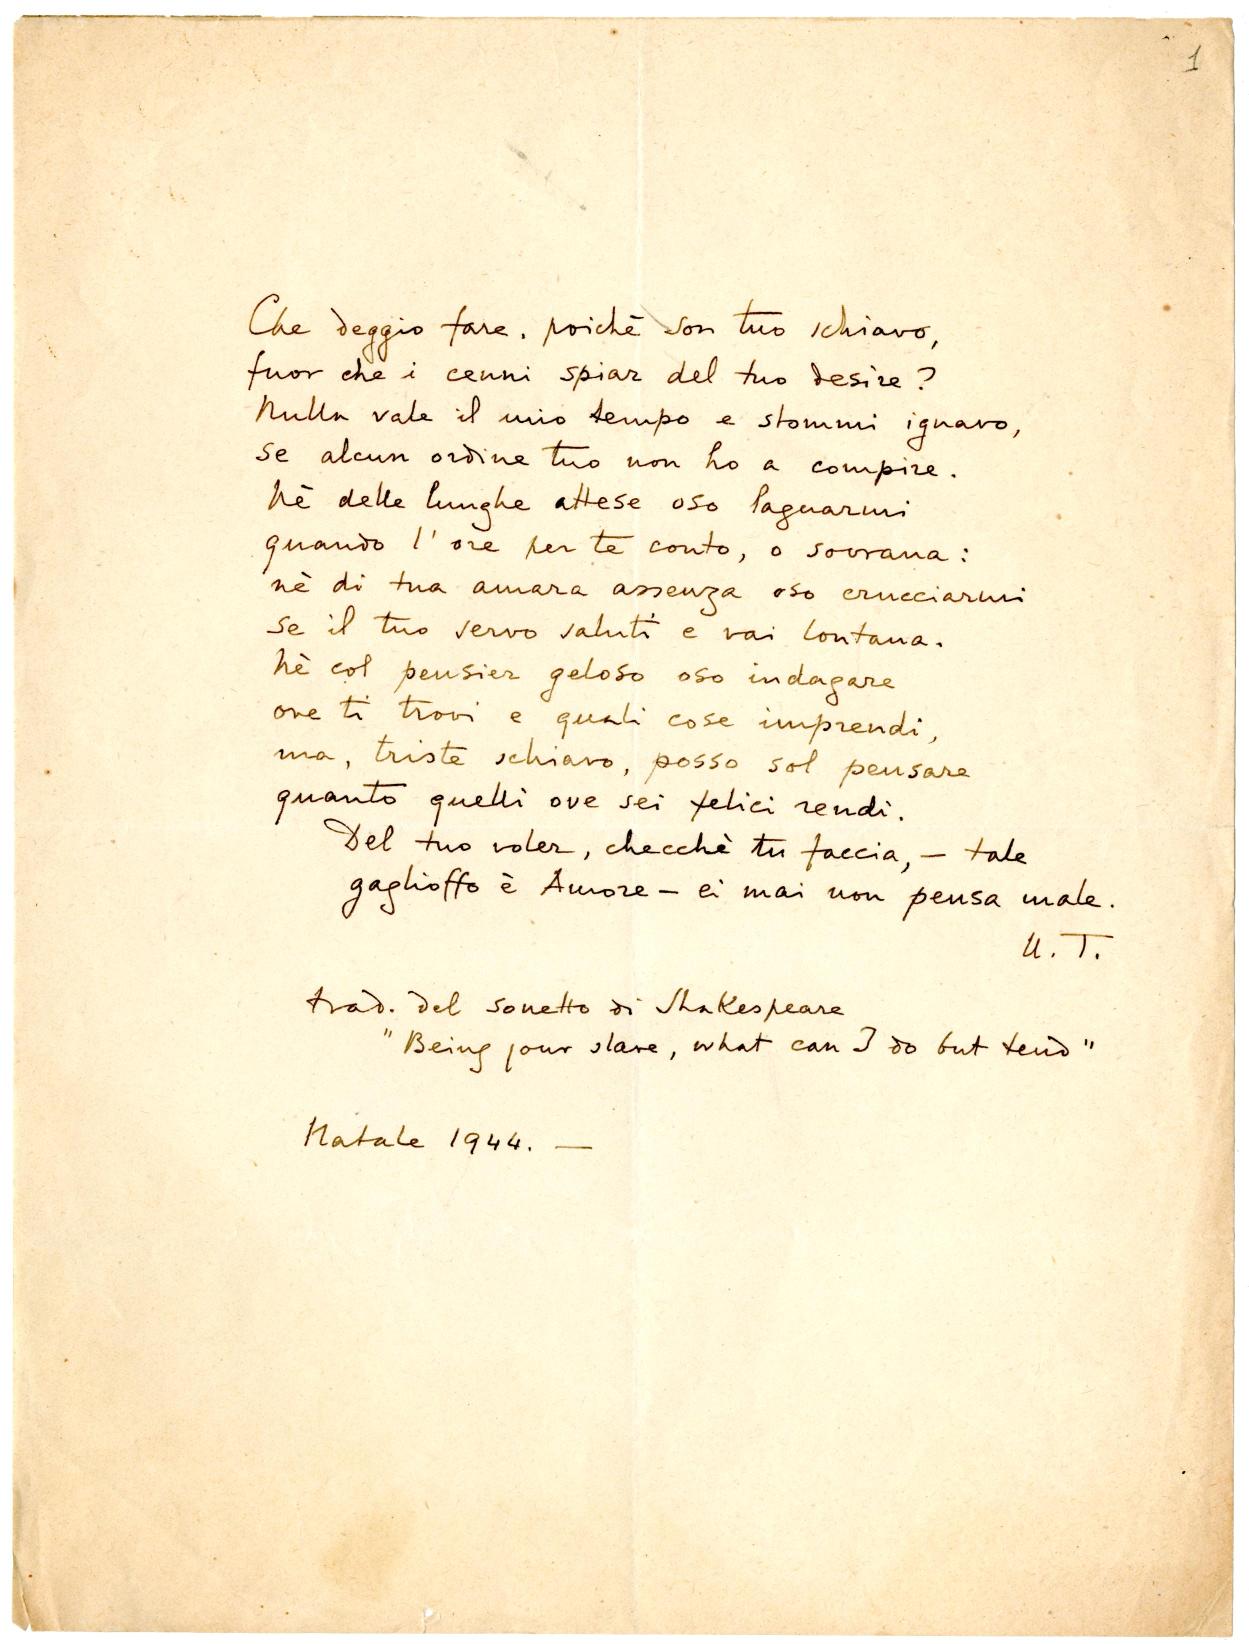 1
Che deggio fare, poichè son tuo schiavo,
fuor che i cenni spiar del tuo desire?
Nulla vale il mio tempo e stommi ignavo,
se alcun ordine tuo non ho a compire.
Nè delle lunghe attese oso lagnarmi
quando l'ore per te conto, o sovrana:
nè di tua amara assenza oso crucciarmi
se il tuo servo saluti e vai lontana.
Nè col pensier geloso oso indagare
ove ti trovi e quali cose imprendi,
ma, triste schiavo, posso sol pensare
quanto quelli ove sei felici rendi.
Del tuo voler, checchè tu faccia, — tale
gaglioffo è Amore — ei mai non pensa male.
U. T.
trad. del sonetto di Shakespeare
"Being your slave, what can I do but tend"
Natale 1944. —